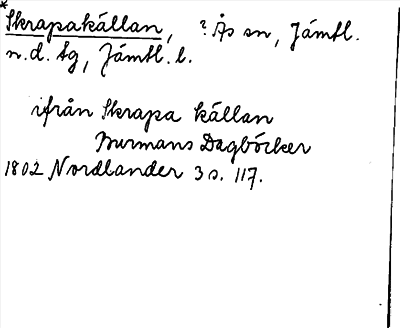 *Skrapakällan, ? Ås sn, Jämtl.
n.d. tg, Jämtl. l.
ifrån Skrapa källan
Burmans Dagböcker
1802 Nordlander 3 s. 117.